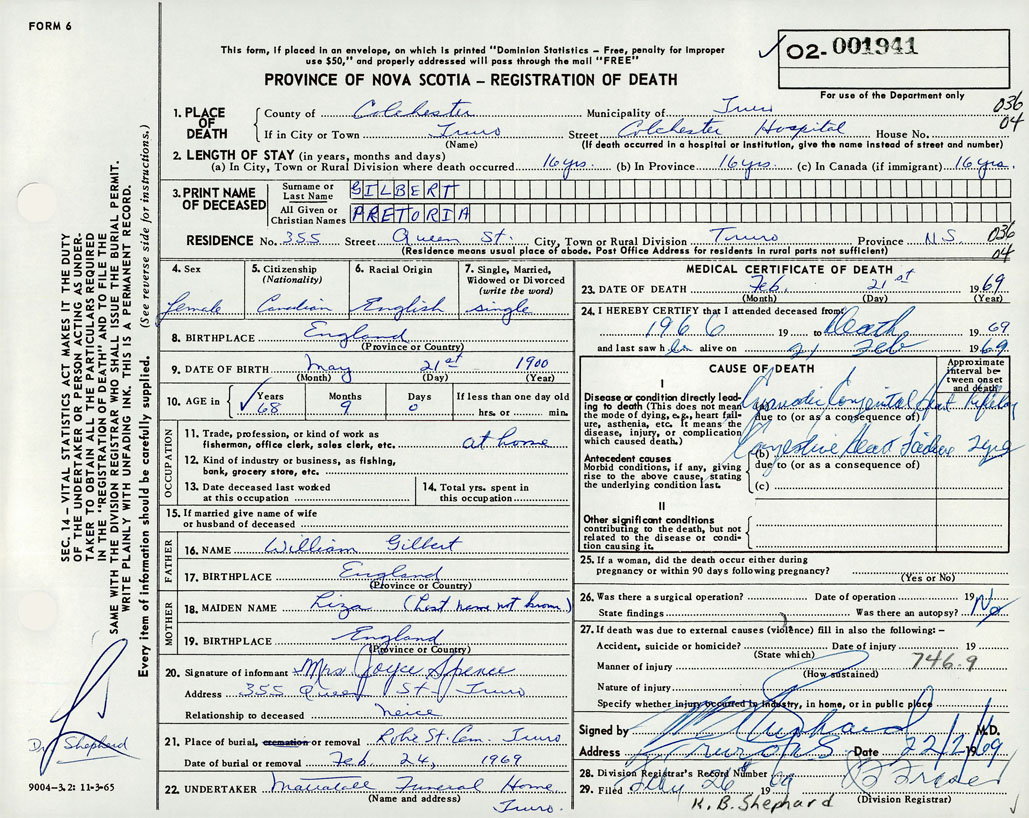 FORM 6
This form, if placed in an envelope, on which is printed "Dominion Statistics – Free, penalty for improper
use $50," and properly addressed will pass through the mail "FREE"
PROVINCE OF NOVA SCOTIA – REGISTRATION OF DEATH
✓ 02- 001941
For use of the Department only
036
04
1. PLACE OF DEATH
County of Colchester Municipality of Truro
If in City or Town Truro Street Colchester Hospital House No.
(Name) (If death occurred in a hospital or institution, give the name instead of street and number)
2. LENGTH OF STAY (in years, months and days)
(a) In City, Town or Rural Division where death occurred 16 yrs. (b) In Province 16 yrs. (c) In Canada (if immigrant) 16 yrs.
3. PRINT NAME OF DECEASED
Surname or Last Name GILBERT
All Given or Christian Names PRETORIA
RESIDENCE No. 355 Street Queen St. City, Town or Rural Division Truro Province N.S. 036
(Residence means usual place of abode. Post Office Address for residents in rural parts not sufficient) 04
4. Sex
female
5. Citizenship
(Nationality)
Canadian
6. Racial Origin
English
7. Single, Married,
Widowed or Divorced
(write the word)
single
8. BIRTHPLACE England
(Province or Country)
9. DATE OF BIRTH May 21st 1900
(Month) (Day) (Year)
10. AGE in Years Months Days If less than one day old
✓ 68 9 0 hrs. or min.
OCCUPATION
11. Trade, profession, or kind of work as
fisherman, office clerk, sales clerk, etc. at home
12. Kind of industry or business, as fishing,
bank, grocery store, etc.
13. Date deceased last worked
at this occupation
14. Total yrs. spent in
this occupation
15. If married give name of wife
or husband of deceased
FATHER
16. NAME William Gilbert
17. BIRTHPLACE England
(Province or Country)
MOTHER
18. MAIDEN NAME Liza (Last name not known)
19. BIRTHPLACE England
(Province or Country)
20. Signature of informant Mrs Joyce Spence
Address 355 Queen St. Truro
Relationship to deceased neice
21. Place of burial, cremation or removal Robie St. Cem. Truro
Date of burial or removal Feb. 24, 1969
22. UNDERTAKER Funeral Home
(Name and address) Truro.
MEDICAL CERTIFICATE OF DEATH
23. DATE OF DEATH Feb. 21st 1969
(Month) (Day) (Year)
24. I HEREBY CERTIFY that I attended deceased from
1966 19 to Death 1969
and last saw h alive on 21 Feb 1969
CAUSE OF DEATH
Approximate
interval be-
tween onset
and death
I
Disease or condition directly lead-
ing to death (This does not mean
the mode of dying, e.g., heart fail-
ure, asthenia, etc. It means the
disease, injury, or complication
which caused death.)
(a) Congenital Heart
due to (or as a consequence of)
Antecedent causes
Morbid conditions, if any, giving
rise to the above cause, stating
the underlying condition last.
(b) Congestive Heart Failure
due to (or as a consequence of)
(c)
II
Other significant conditions
contributing to the death, but not
related to the disease or condi-
tion causing it.
25. If a woman, did the death occur either during
pregnancy or within 90 days following pregnancy?
(Yes or No)
26. Was there a surgical operation? Date of operation 19
State findings Was there an autopsy? No
27. If death was due to external causes (violence) fill in also the following: –
Accident, suicide or homicide? Date of injury 19
(State which)
Manner of injury 746.9
(How sustained)
Nature of injury
Specify whether injury occurred in industry, in home, or in public place
Signed by M.D.
Address Truro NS Date 22/2/1969
28. Division Registrar's Record Number
29. Filed 26 1969
(Division Registrar)
K. B. Shephard
SEC. 14 – VITAL STATISTICS ACT MAKES IT THE DUTY
OF THE UNDERTAKER OR PERSON ACTING AS UNDER-
TAKER TO OBTAIN ALL THE PARTICULARS REQUIRED
IN THE "REGISTRATION OF DEATH" AND TO FILE THE
SAME WITH THE DIVISION REGISTRAR WHO SHALL ISSUE THE BURIAL PERMIT.
WRITE PLAINLY WITH UNFADING INK. THIS IS A PERMANENT RECORD.
Every item of information should be carefully supplied. (See reverse side for instructions.)
Dr Shephard
9004-3.2: 11-3-65